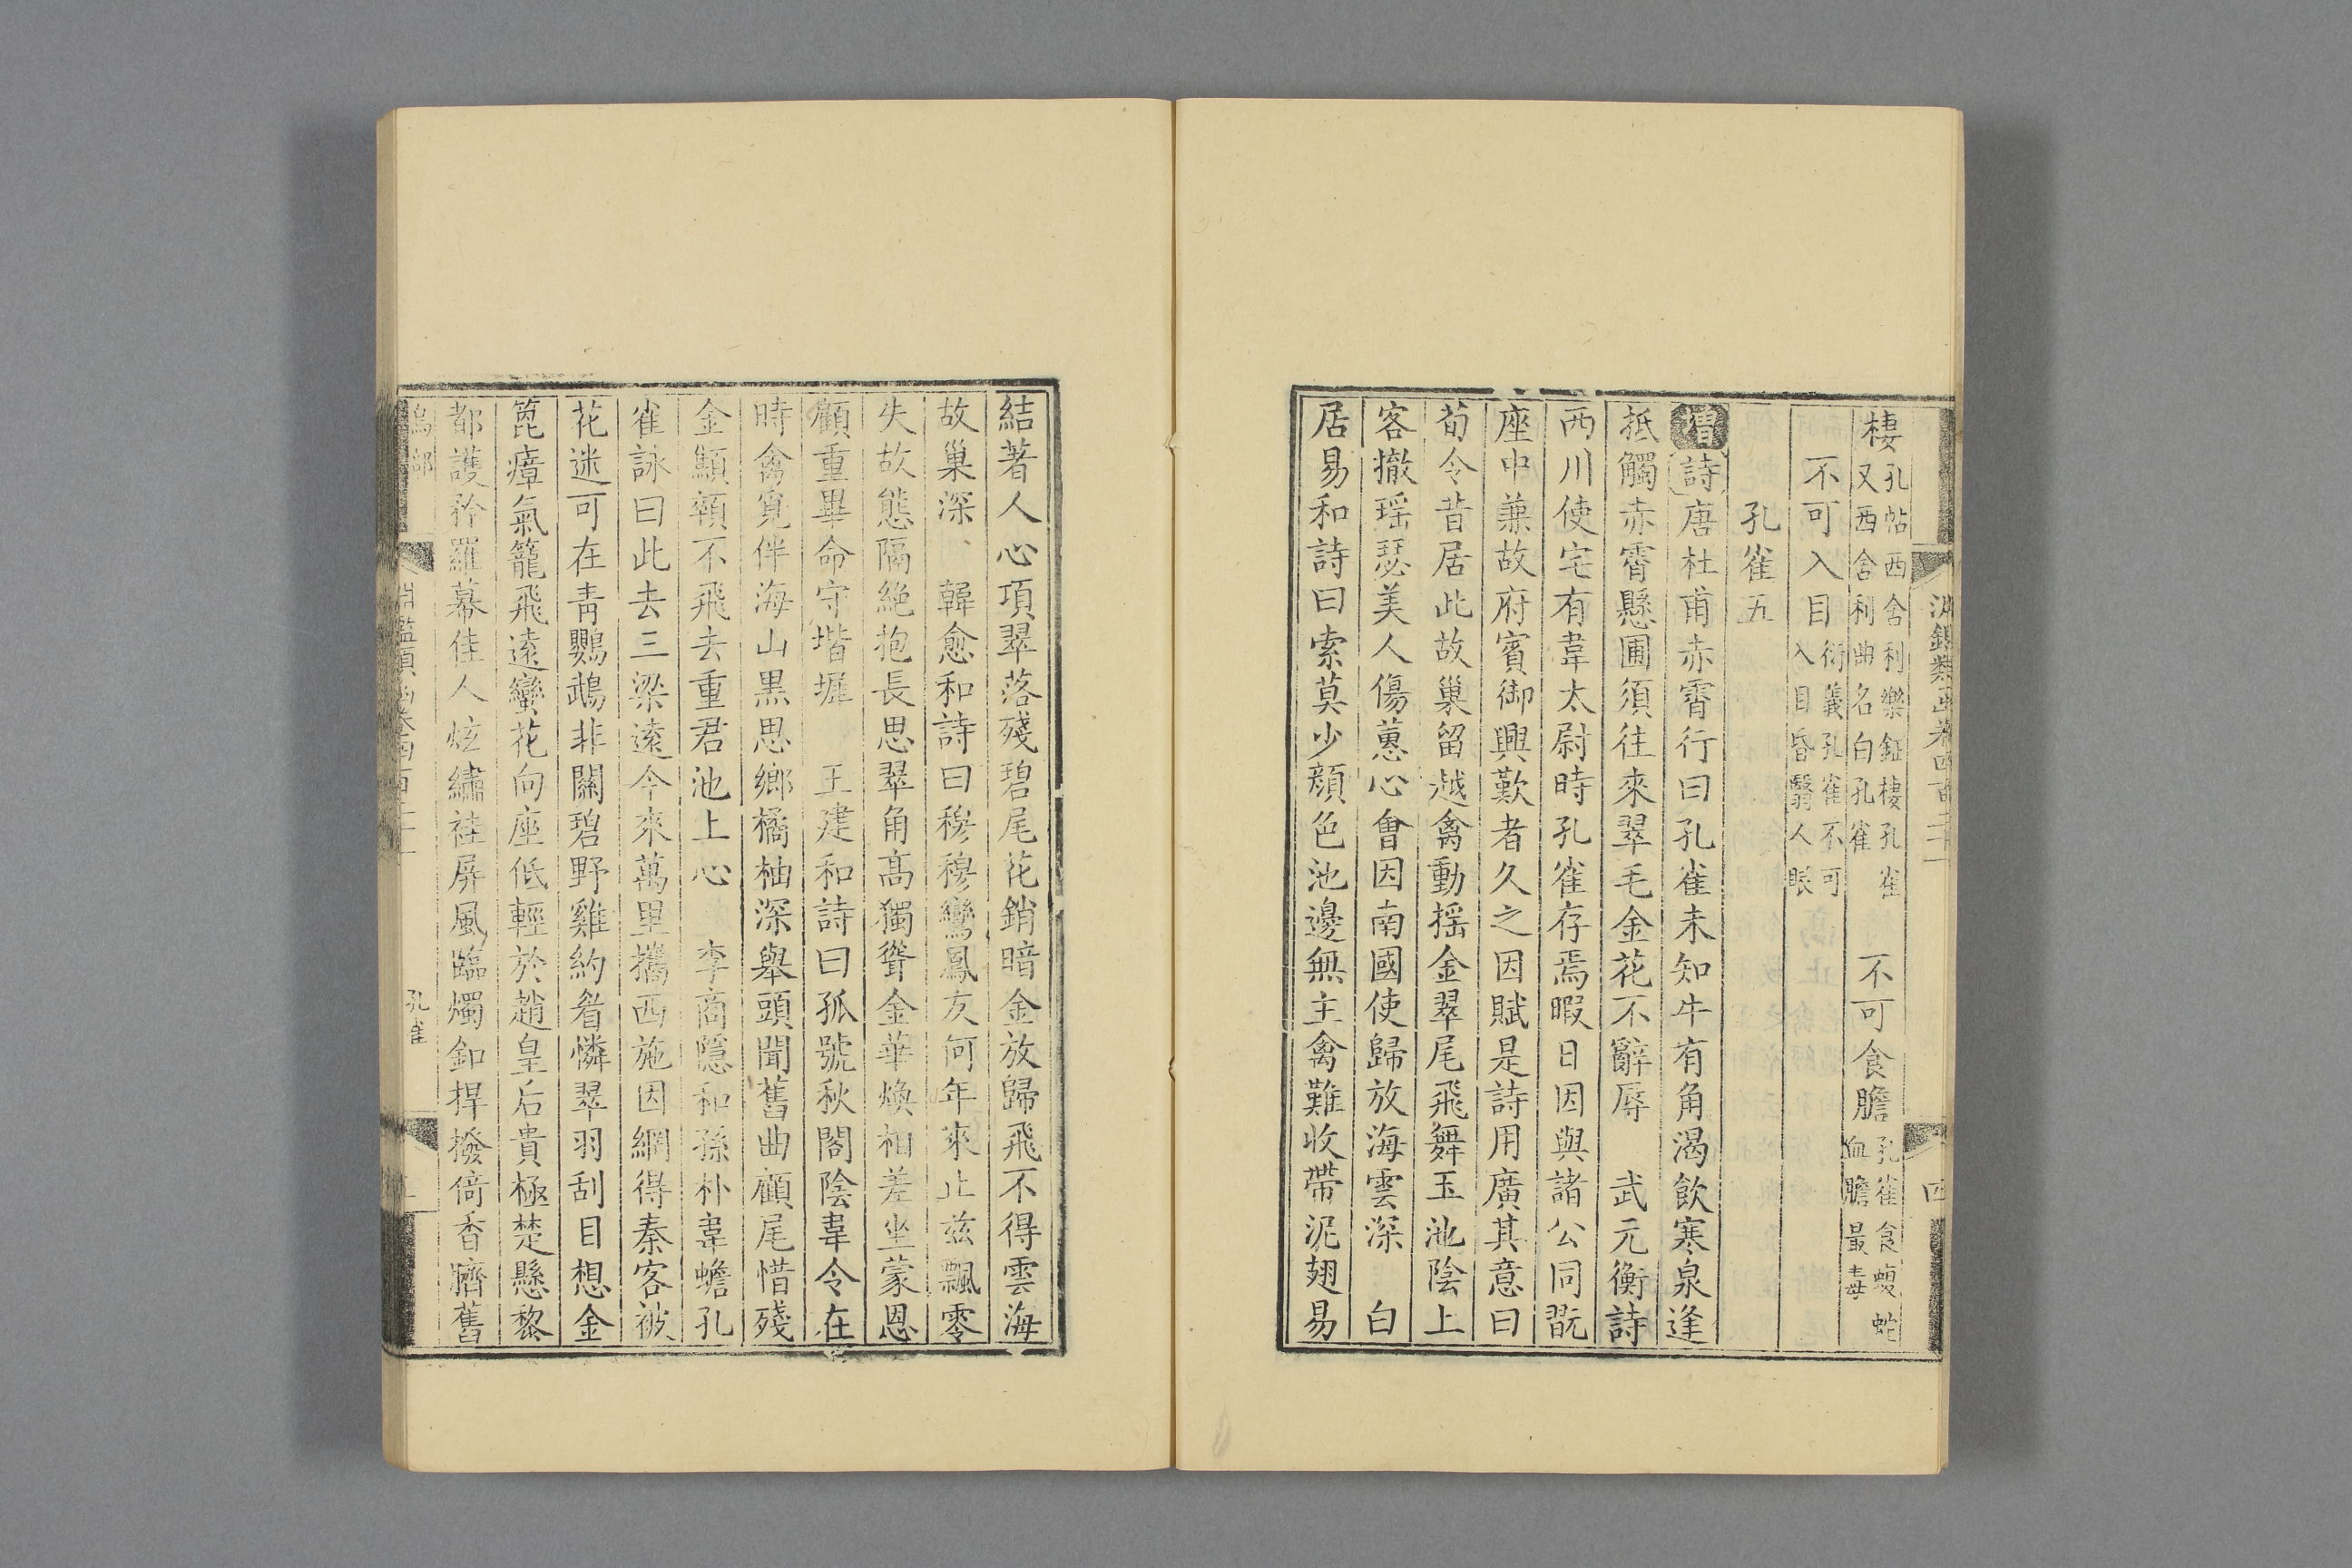 淵鑑類函卷四百二十一
四
棲
孔帖西舍利樂鉦棲孔雀
又西舍利曲名白孔雀
不可食膽
孔雀食蝮蛇
血膽最毒
不可入目
衍義孔雀不可
入目昏翳人眼
孔雀五
增詩唐杜甫赤霄行曰孔雀未知牛有角渴飲寒泉逢
抵觸赤霄懸圃須往來翠毛金花不辭辱 武元衡詩
西川使宅有韋太尉時孔雀存焉暇日因與諸公同翫
座中兼故府賓御興歎者久之因賦是詩用廣其意曰
荀令昔居此故巢留越禽動揺金翠尾飛舞玉池陰上
客撤瑶瑟美人傷蕙心會因南國使歸放海雲深 白
居易和詩曰索莫少顔色池邊無主禽難收帶泥翅易
結著人心項翠落殘碧尾花銷暗金放歸飛不得雲海
故巢深 韓愈和詩曰穆穆鸞鳳友何年來止兹飄零
失故態隔絶抱長思翠角髙獨聳金華煥相差坐蒙恩
顧重畢命守堦墀 王建和詩曰孤號秋閣陰韋令在
時禽覓伴海山黒思鄉橘柚深舉頭聞舊曲顧尾惜殘
金顦顇不飛去重君池上心 李商隱和孫朴韋蟾孔
雀詠曰此去三梁逺今來萬里攜西施因網得秦客被
花迷可在青鸚鵡非關碧野雞約眉憐翠羽刮目想金
篦瘴氣籠飛逺蠻花向座低輕於趙皇后貴極楚懸黎
都護矜羅幕佳人炫繡袿屏風臨燭釦捍撥倚香臍舊
孔雀